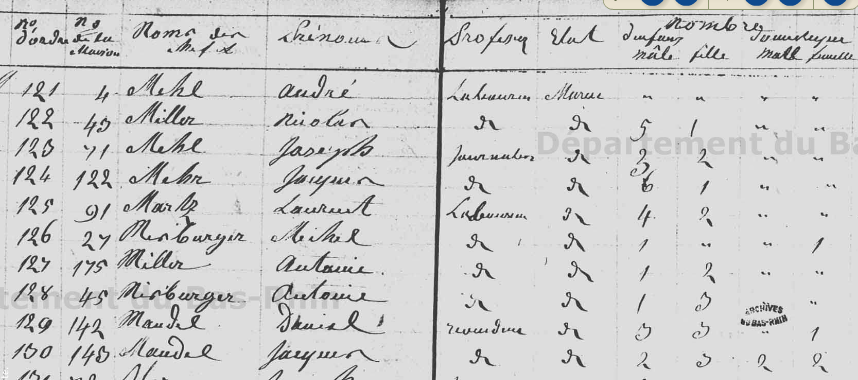 No d'ordre No de la Maison Noms des chefs Prénoms Profession Etat Nombre
d'enfans Domestique
mâle fille male femelle
121 4 Mehl André Laboureur Marié " " " "
122 43 Miller Nicolas dt dt 5 1 " "
123 71 Mehl Joseph Journalier dt 2 2 " "
124 122 Mehr Jacques dt dt 1 " "
125 91 Martz Laurent Laboureur dt 4 2 " "
126 27 Michel dt dt 1 " " 1
127 175 Miller Antoine dt dt 1 2 " "
128 45 Antoine dt dt 1 3 "
129 142 Mandel Daniel dt 3 3 1
130 143 Mandel Jacques dt dt 2 3 2 2
Département du Ba
tement du Bas-Rhin
ARCHIVES
DU BAS-RHIN